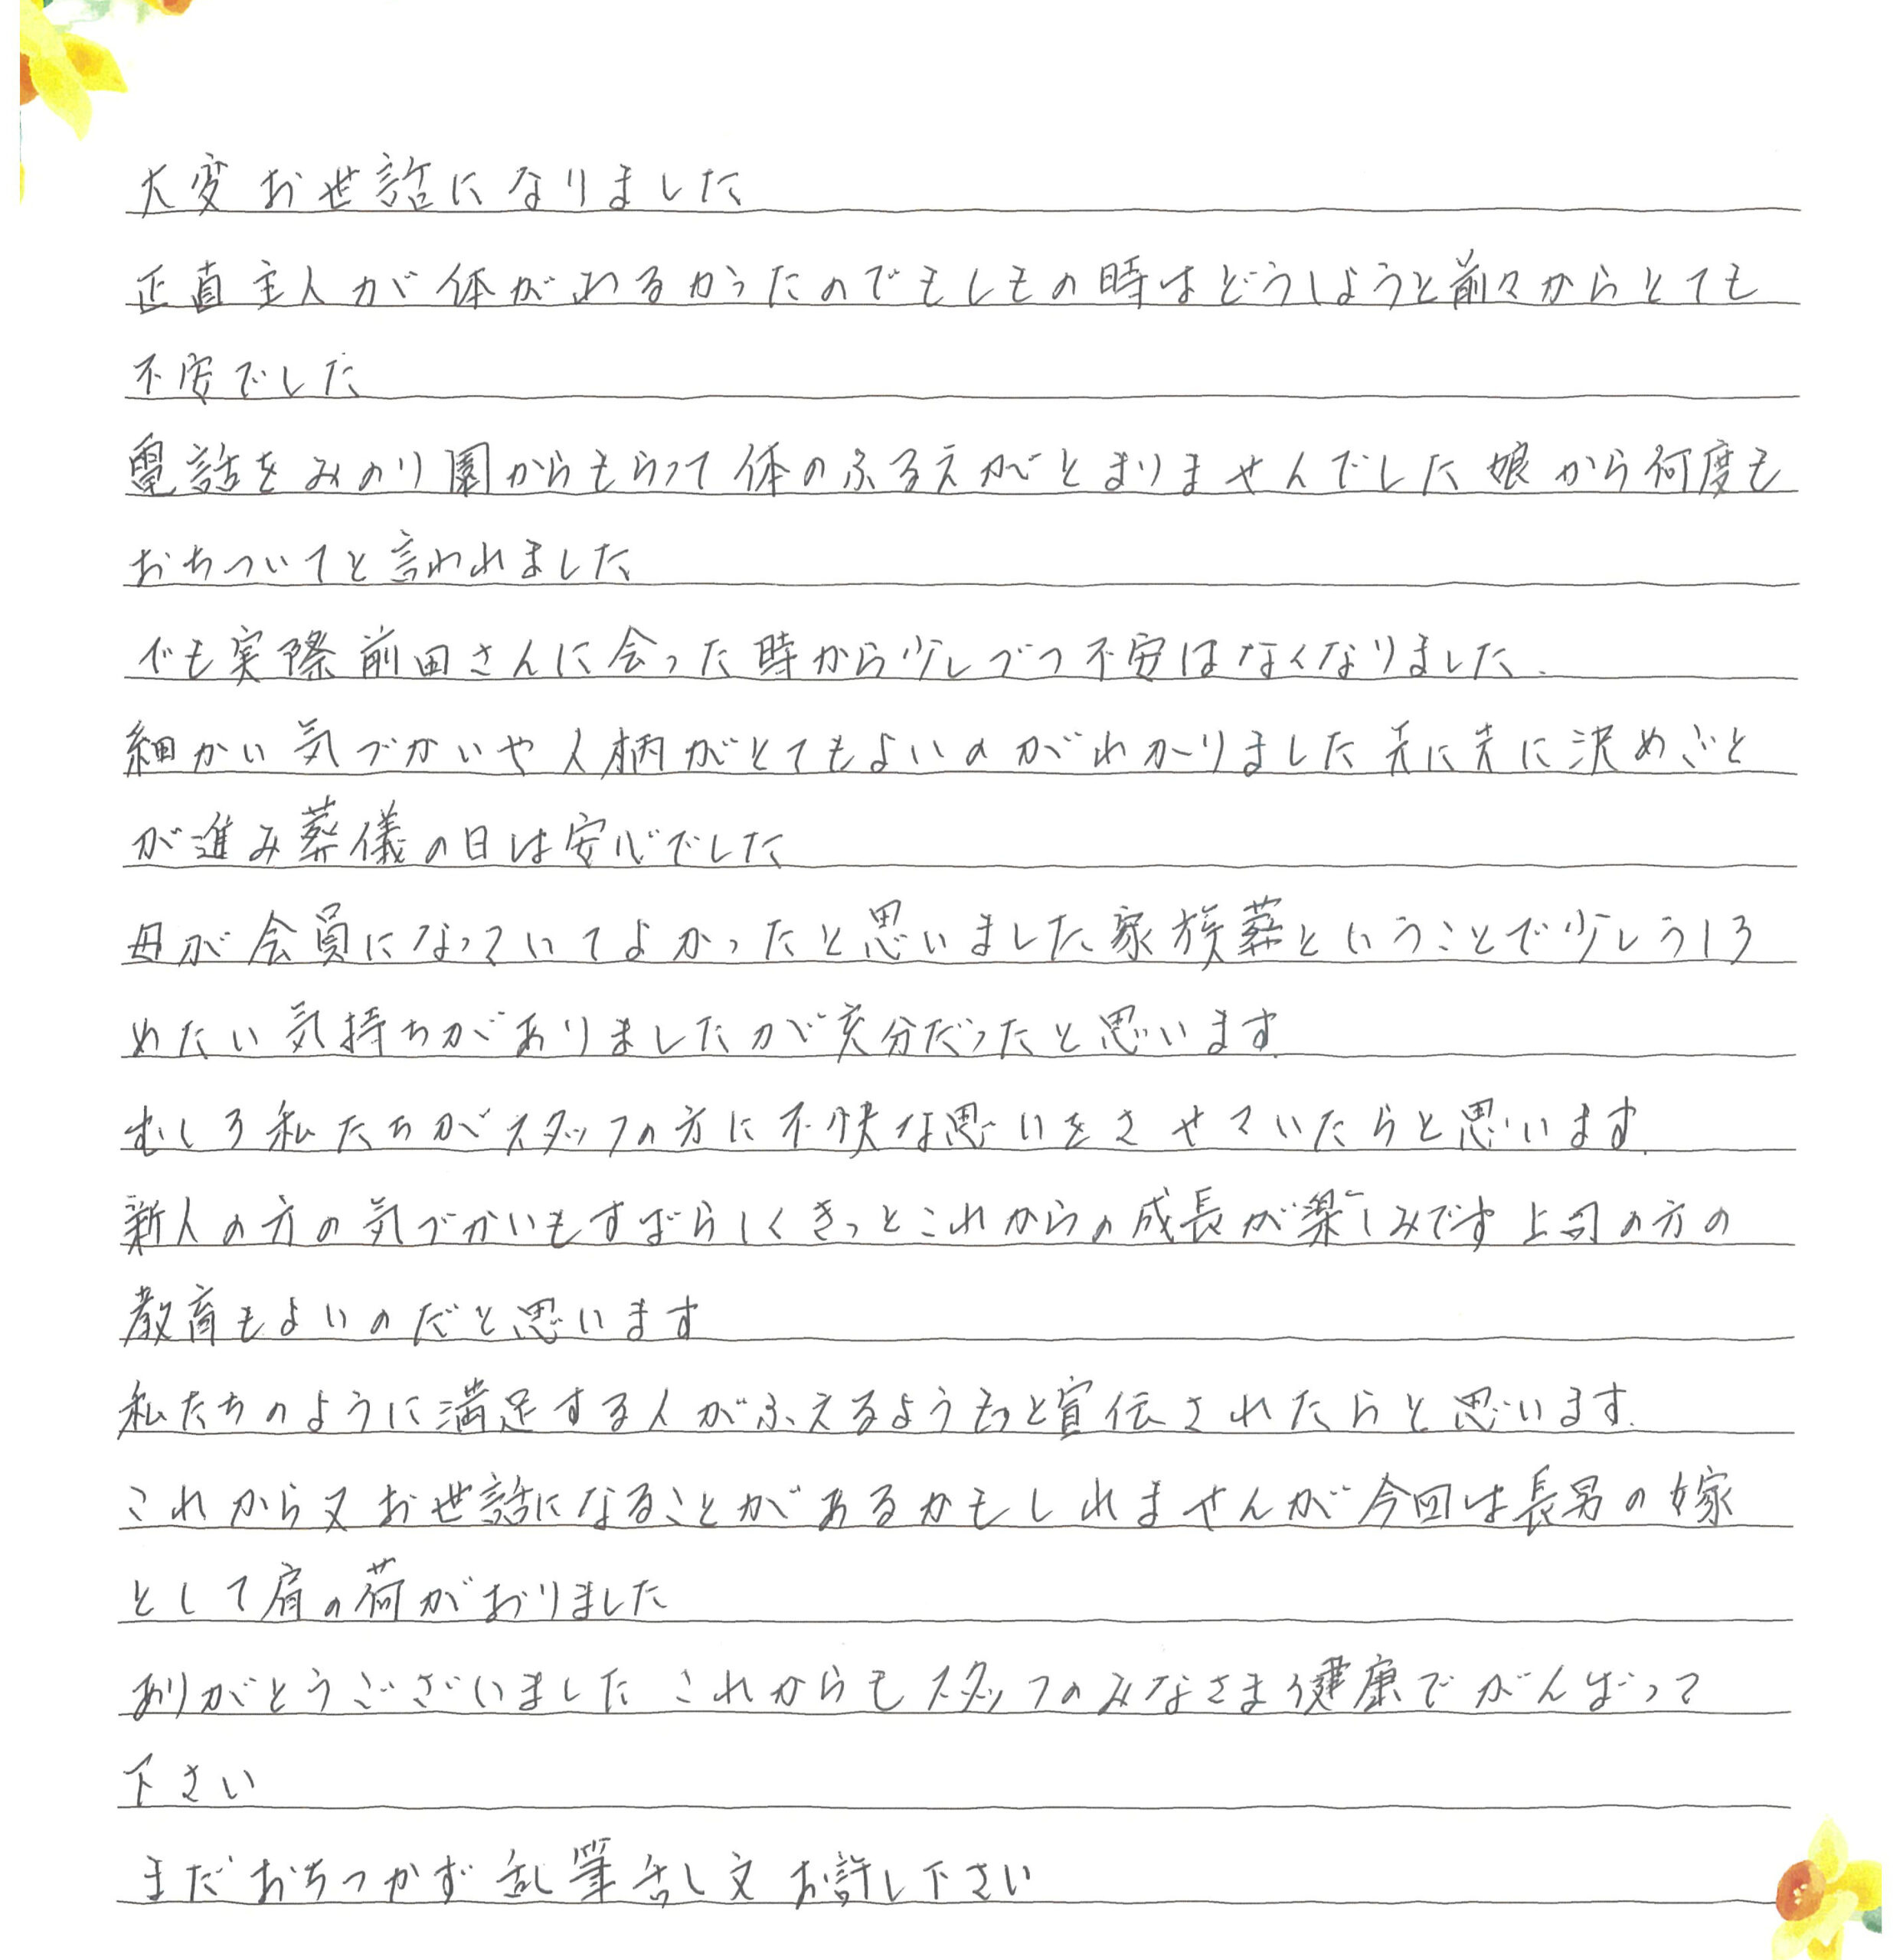 大変お世話になりました
正直主人が体がわるかったのでもしもの時はどうしようと前々からとても
不安でした
電話をみのり園からもらって体のふるえがとまりませんでした娘から何度も
おちついてと言われました
でも実際前田さんに会った時から少しづつ不安はなくなりました.
細かい気づかいや人柄がとてもよいのがわかりました先に先に決めごと
が進み葬儀の日は安心でした
母が会員になっていてよかったと思いました家族葬ということで少しうしろ
めたい気持ちがありましたが充分だったと思います.
むしろ私たちがスタッフの方に不快な思いをさせていたらと思います.
新人の方の気づかいもすばらしくきっとこれからの成長が楽しみです上司の方の
教育もよいのだと思います
私たちのように満足する人がふえるようもっと宣伝されたらと思います.
これから又お世話になることがあるかもしれませんが今回は長男の嫁
として肩の荷がおりました
ありがとうございました これからもスタッフのみなさまう健康でがんばって
下さい
まだおちつかず乱筆乱文お許し下さい